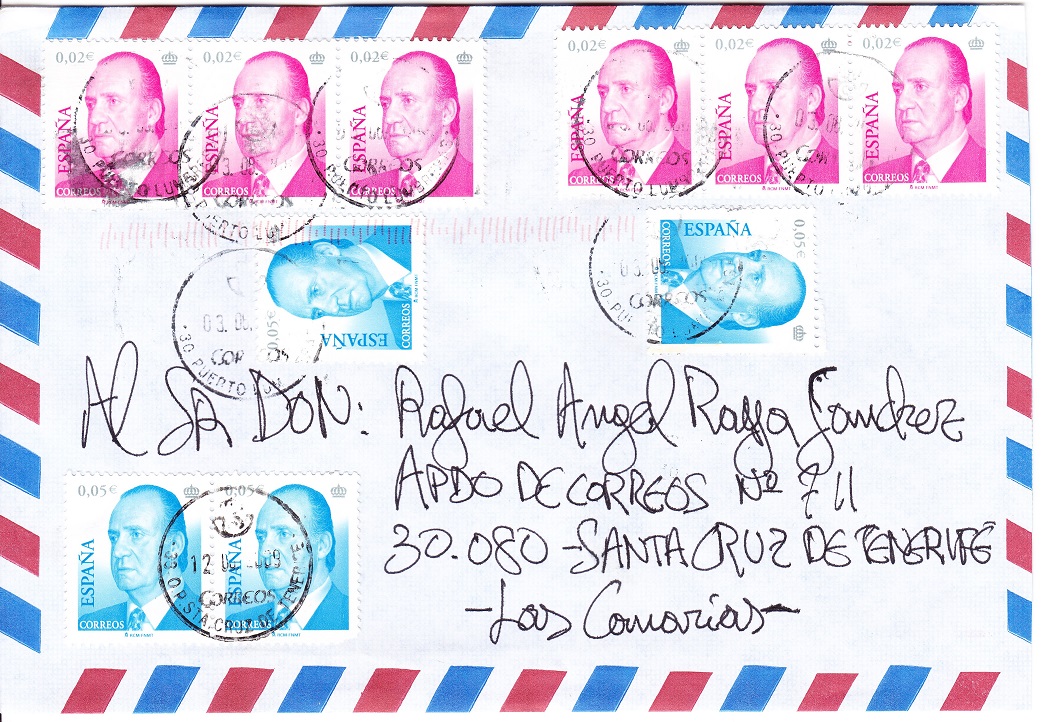 0,02€ 0,02€ 0,02€ 0,02€ 0,02€ 0,02€
ESPAÑA ESPAÑA ESPAÑA ESPAÑA ESPAÑA ESPAÑA
CORREOS CORREOS CORREOS CORREOS CORREOS CORREOS
ESPAÑA 0,05€ CORREOS
ESPAÑA 0,05€ CORREOS
03.08.
CORREOS
30-PUERTO LUM
Al SR DON: Rafael Angel Raya Sanchez
APDO DE CORREOS Nº 711
30.080-SANTA CRUZ DE TENERIFE
-Las Canarias-
0,05€ 0,05€
ESPAÑA ESPAÑA
CORREOS CORREOS
RCM-FNMT RCM-FNMT
12 2009
CORREOS
O.P. STA. CRUZ DE TENERIFE